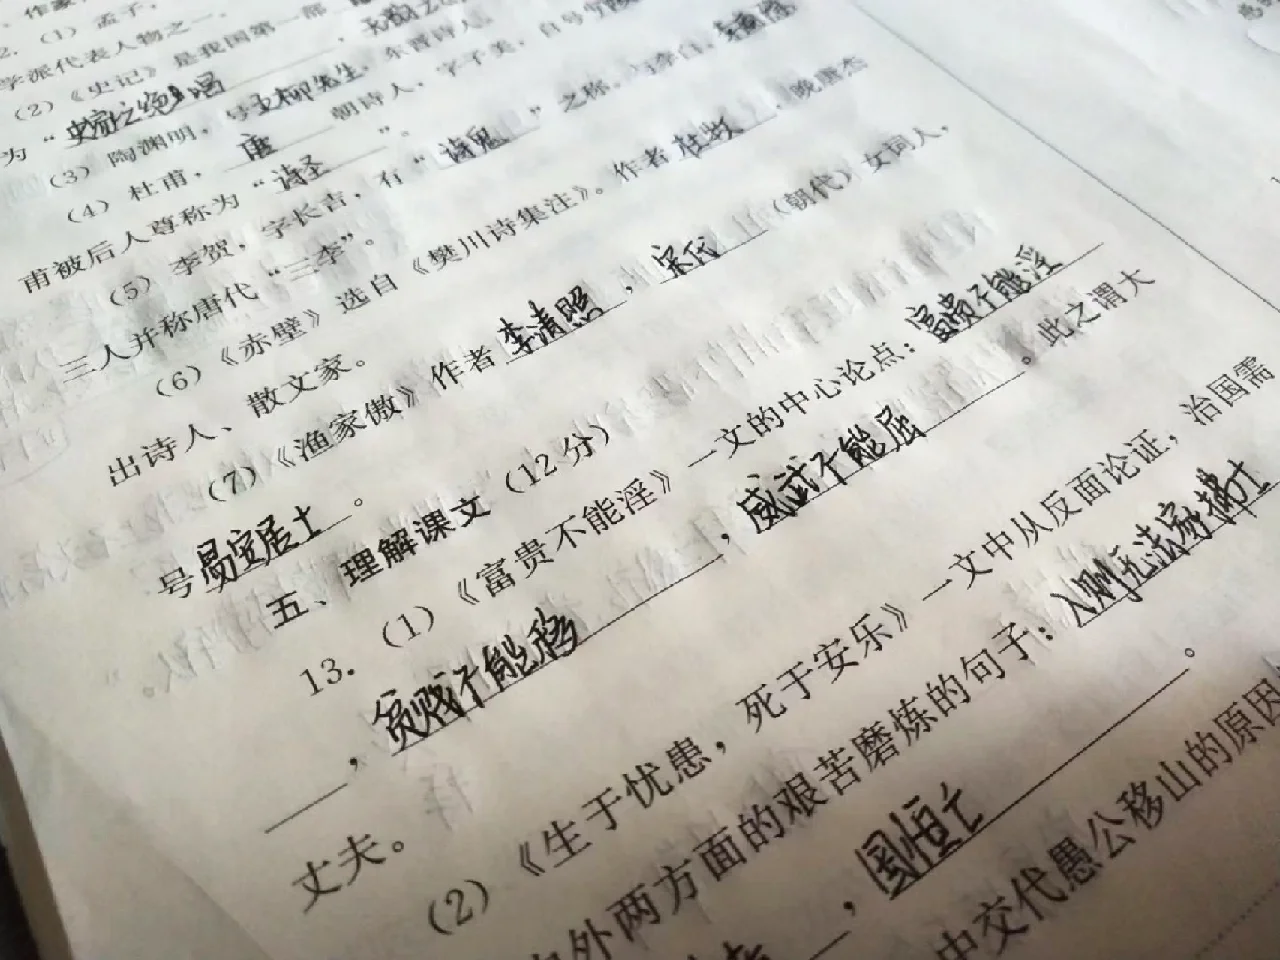 2. (1) 孟子，
学派代表人物之一。
(2)《史记》是我国第一部
为“史家之绝唱
(3) 陶渊明，号五柳先生 东晋诗人
(4) 杜甫， 唐 朝诗人，字子美，自号
甫被后人尊称为“诗圣”。
(5) 李贺，字长吉，有“诗鬼”之称。与李白、
三人并称唐代“三李”。
(6)《赤壁》选自《樊川诗集注》。作者杜牧，晚唐杰
出诗人、散文家。
(7)《渔家傲》作者李清照，宋代(朝代)女词人，
号易安居士。
五、理解课文 (12分)
13. (1)《富贵不能淫》一文的中心论点：富贵不能淫
，贫贱不能移，威武不能屈。此之谓大
丈夫。
(2)《生于忧患，死于安乐》一文中从反面论证，治国需
内外两方面的艰苦磨炼的句子：入则无法家拂士
，国恒亡。
中交代愚公移山的原因